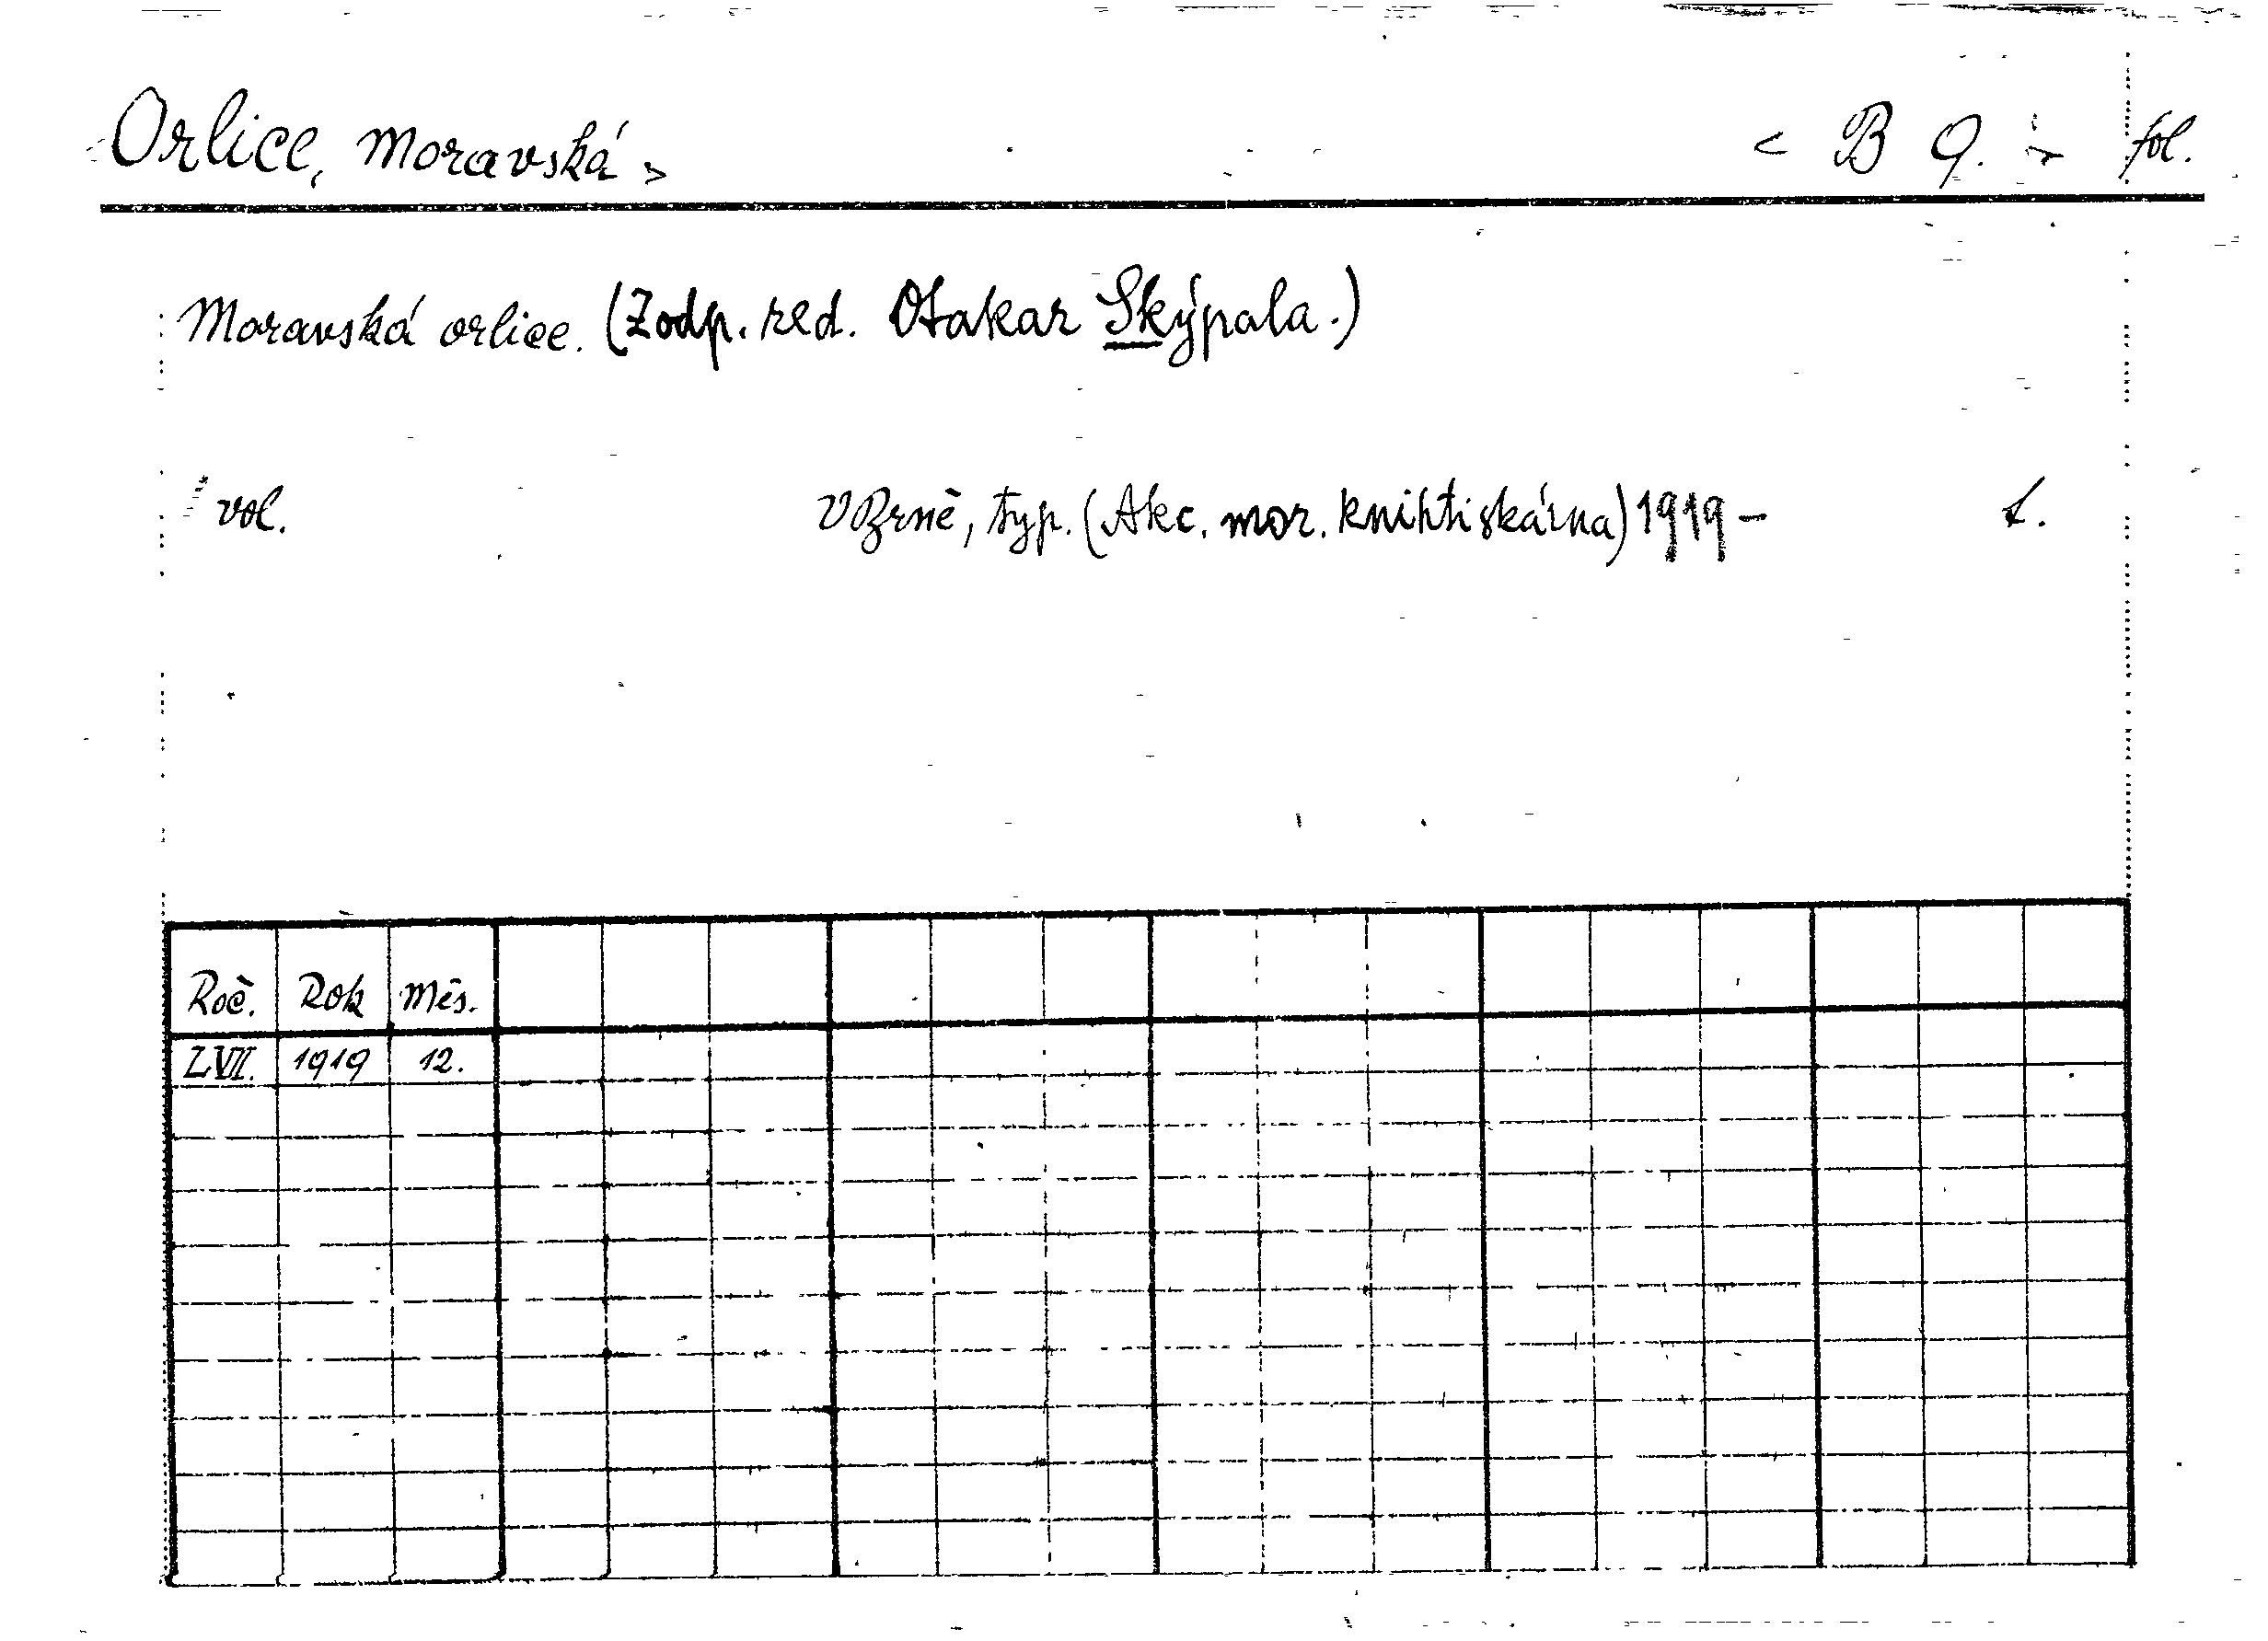 Orlice, Moravská > < B 9. fol.
Moravská orlice. (Zodp. red. Otakar Skýpala.)
vol. V Brně, typ. (Akc. mor. knihtiskárna) 1919 –
Roč. Rok Měs.
LVII. 1919 12.